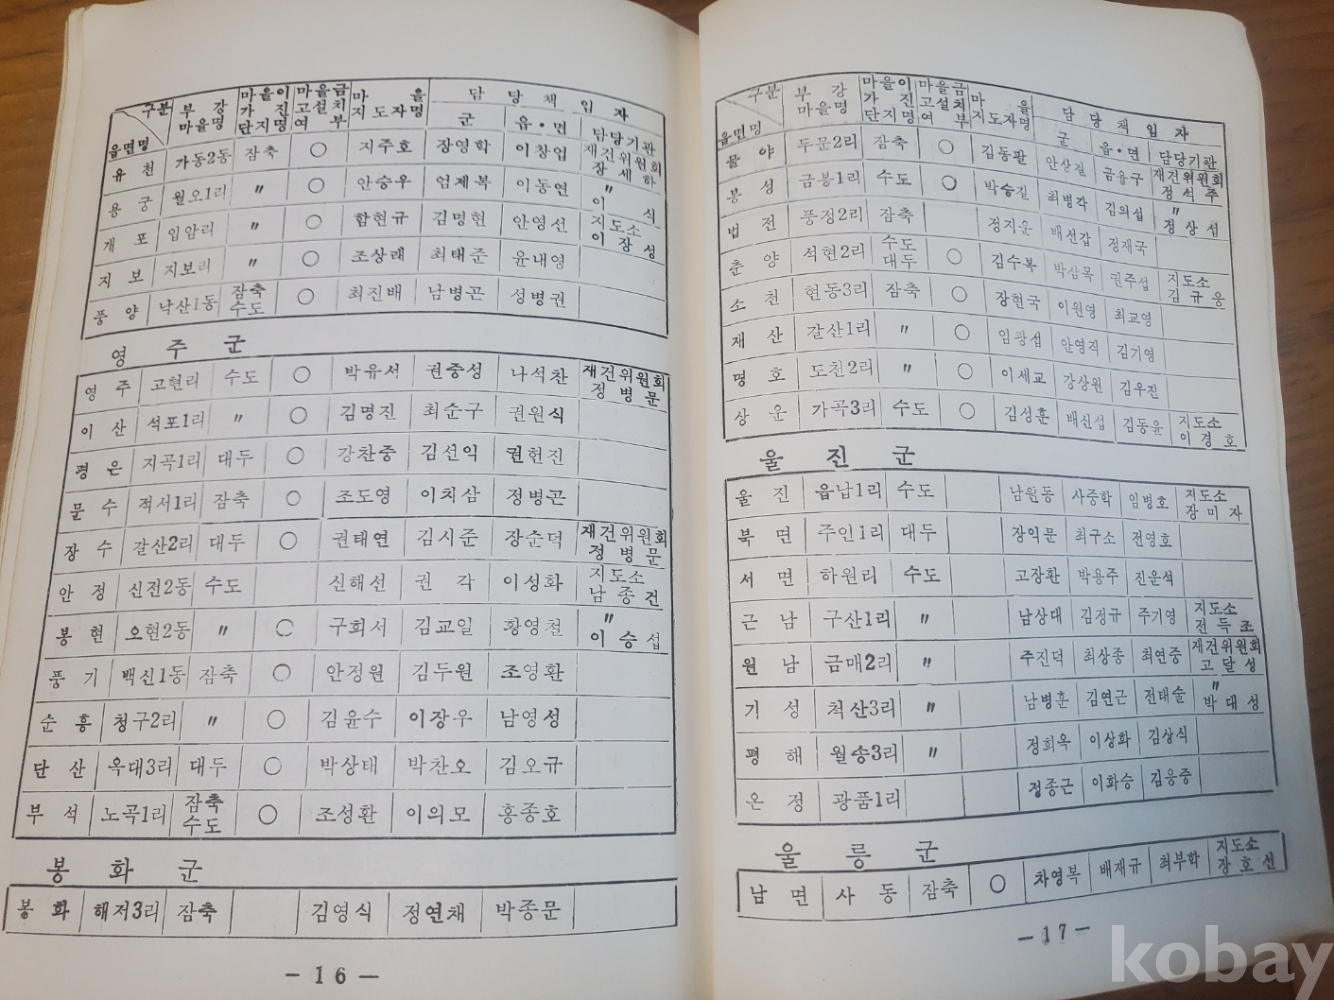 구분 부강마을명 마을이가진단지명 마을금고설치여부 마을지도자명 담당책임자
읍면명 군 읍·면 담당기관
유천 가동2동 잠축 ○ 지주호 장영학 이창업 재건위원회 장세하
용궁 월오1리 〃 ○ 안승우 엄제복 이동연 〃 이식
개포 입암리 〃 ○ 함현규 김명현 안영선 지도소 이장성
지보 지보리 〃 ○ 조상래 최태준 윤내영
풍양 낙산1동 잠축 수도 ○ 최진배 남병곤 성병권
영주군
영주 고현리 수도 ○ 박유서 권중성 나석찬 재건위원회 정병문
이산 석포1리 〃 ○ 김명진 최순구 권원식
평은 지곡1리 대두 ○ 강찬중 김선익 권헌진
문수 적서1리 잠축 ○ 조도영 이치삼 정병곤
장수 갈산2리 대두 ○ 권태연 김시준 장순덕 재건위원회 정병문
안정 신전2동 수도 신해선 권각 이성화 지도소 남종건
봉현 오현2동 〃 ○ 구회서 김교일 황영천 〃 이승섭
풍기 백신1동 잠축 ○ 안정원 김두원 조영환
순흥 청구2리 〃 ○ 김윤수 이장우 남영성
단산 옥대3리 대두 ○ 박상태 박찬오 김오규
부석 노곡1리 잠축 수도 ○ 조성환 이의모 홍종호
봉화군
봉화 해저3리 잠축 김영식 정연채 박종문
- 16 -
구분 부강마을명 마을이가진단지명 마을금고설치여부 마을지도자명 담당책임자
읍면명 군 읍·면 담당기관
물야 두문2리 잠축 ○ 김동판 안상길 금용구 재건위원회 정석주
봉성 금봉1리 수도 ○ 박승길 최병각 김의섭 〃 정상섭
법전 풍정2리 잠축 정지운 배선갑 정재국
춘양 석현2리 수도 대두 ○ 김수복 박삼목 권주섭 지도소 김규웅
소천 현동3리 잠축 ○ 장현국 이원영 최교영
재산 갈산1리 〃 ○ 임광섭 안영직 김기영
명호 도천2리 〃 ○ 이세교 강상원 김우진
상운 가곡3리 수도 ○ 김성훈 배신섭 김동윤 지도소 이경호
울진군
울진 읍남1리 수도 남원동 사중학 임병호 지도소 장미자
북면 주인1리 대두 장익문 최구소 전영호
서면 하원리 수도 고장환 박용주 진운석
근남 구산1리 〃 남상대 김정규 주기영 지도소 전득조
원남 금매2리 〃 주진덕 최상종 최연중 재건위원회 고달성
기성 척산3리 〃 남병훈 김연근 전태술 〃 박대성
평해 월송3리 〃 정희옥 이상화 김상식
온정 광품1리 정종근 이화승 김응중
울릉군
남면 사동 잠축 ○ 차영복 배재규 최부학 지도소 장호선
- 17 -
kobay